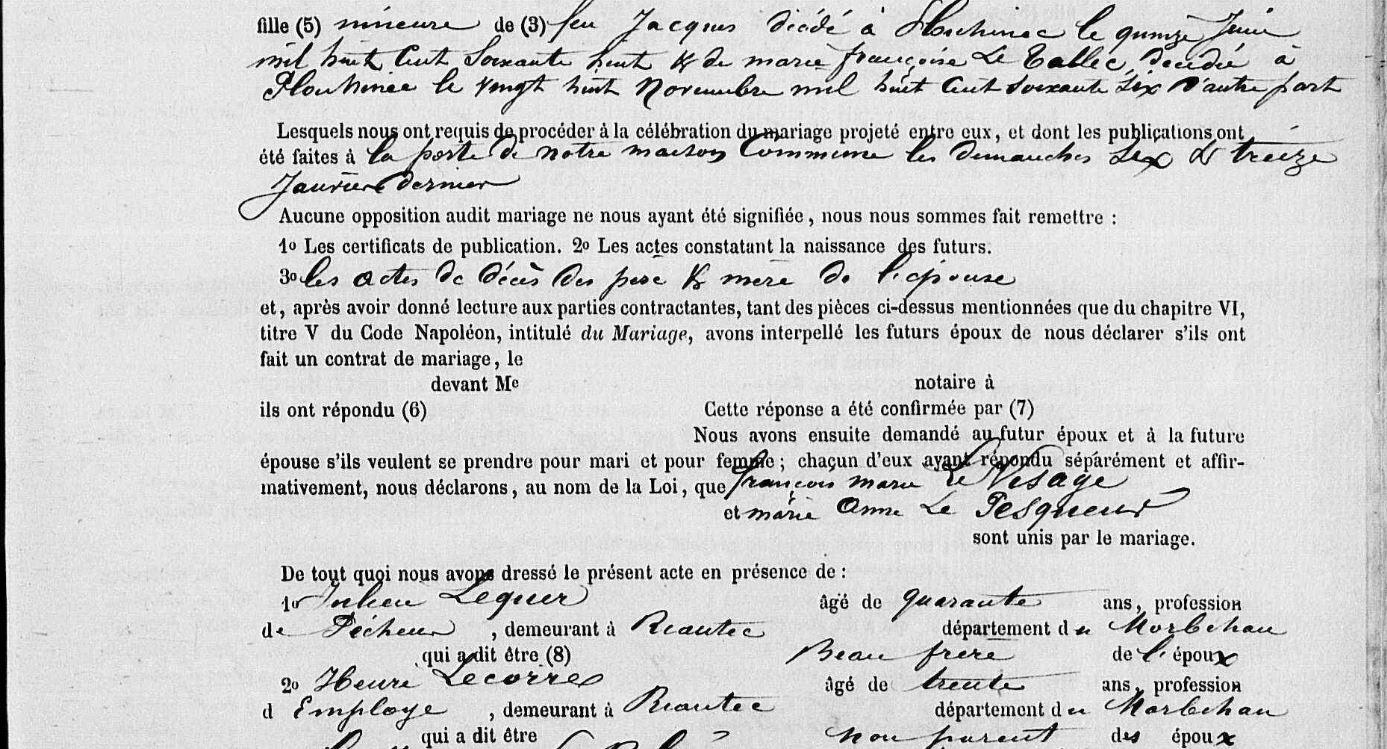 fille (5) mineure de (3) feu Jacques décédé à Plouhinec le quinze Juin
mil huit Cent Soixante huit & de marie françoise Le Tallec, décédée à
Plouhinec le vingt huit Novembre mil huit Cent soixante Six D'autre part
Lesquels nous ont requis de procéder à la célébration du mariage projeté entre eux, et dont les publications ont
été faites à la porte de notre maison Commune les dimanches Six & treize
Janvier dernier
Aucune opposition audit mariage ne nous ayant été signifiée, nous nous sommes fait remettre :
1o Les certificats de publication. 2o Les actes constatant la naissance des futurs.
3o les actes de décès des père & mère de l'épouse
et, après avoir donné lecture aux parties contractantes, tant des pièces ci-dessus mentionnées que du chapitre VI,
titre V du Code Napoléon, intitulé du Mariage, avons interpellé les futurs époux de nous déclarer s'ils ont
fait un contrat de mariage, le
devant Me notaire à
ils ont répondu (6) Cette réponse a été confirmée par (7)
Nous avons ensuite demandé au futur époux et à la future
épouse s'ils veulent se prendre pour mari et pour femme ; chacun d'eux ayant répondu séparément et affir-
mativement, nous déclarons, au nom de la Loi, que françois marie Le Visage
et marie Anne Le Pesqueur
sont unis par le mariage.
De tout quoi nous avons dressé le présent acte en présence de :
1o Julien Lequer âgé de quarante ans, profession
de Pécheur, demeurant à Riantec département du Morbihan
qui a dit être (8) Beau frère de l'époux
2o Henri Lecorre âgé de trente ans, profession
d Employe, demeurant à Riantec département du Morbihan
qui a dit être non parent des époux